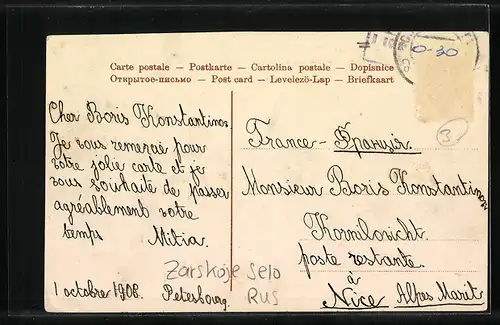 Carte postale – Postkarte – Cartolina postale – Dopisnice
Открытое-письмо – Post card – Levelezö-Lap – Briefkaart
0-30
3
Cher Boris Konstantinov.
Je vous remercie pour
votre jolie carte et je
vous souhaite de passer
agréablement votre
temps Mitia.
1 octobre 1908. Petesbourg.
Zarskoje Selo
RUS
France – Франція.
Monsieur Boris Konstantinov
Kornilosicht.
poste restante.
à
Nice Alpes Marit